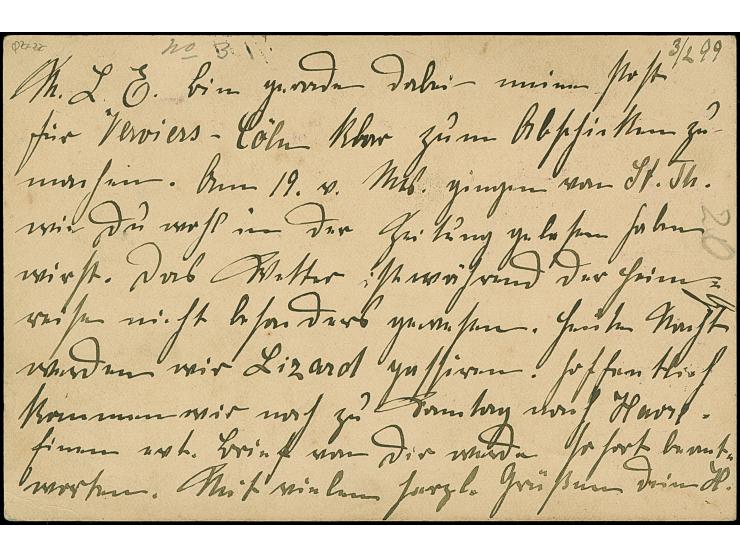 No B 1
3/2 99
M. L. E. bin gerade dabei meine Post
für Verviers-Cöln klar zum Abschicken zu
machen. Am 19. v. Mts. gingen von St. Th.
wie Du wohl in der Zeitung gelesen haben
wirst. Das Wetter ist während der Heim=
reise nicht besonders gewesen. Heute Nacht
werden wir Lizard passiren. Hoffentlich
kommen wir noch zu Samstag nach Havre.
Einen evt. Brief von Dir werde sofort beant=
worten. Mit vielen herzl. Grüßen dein H.
20